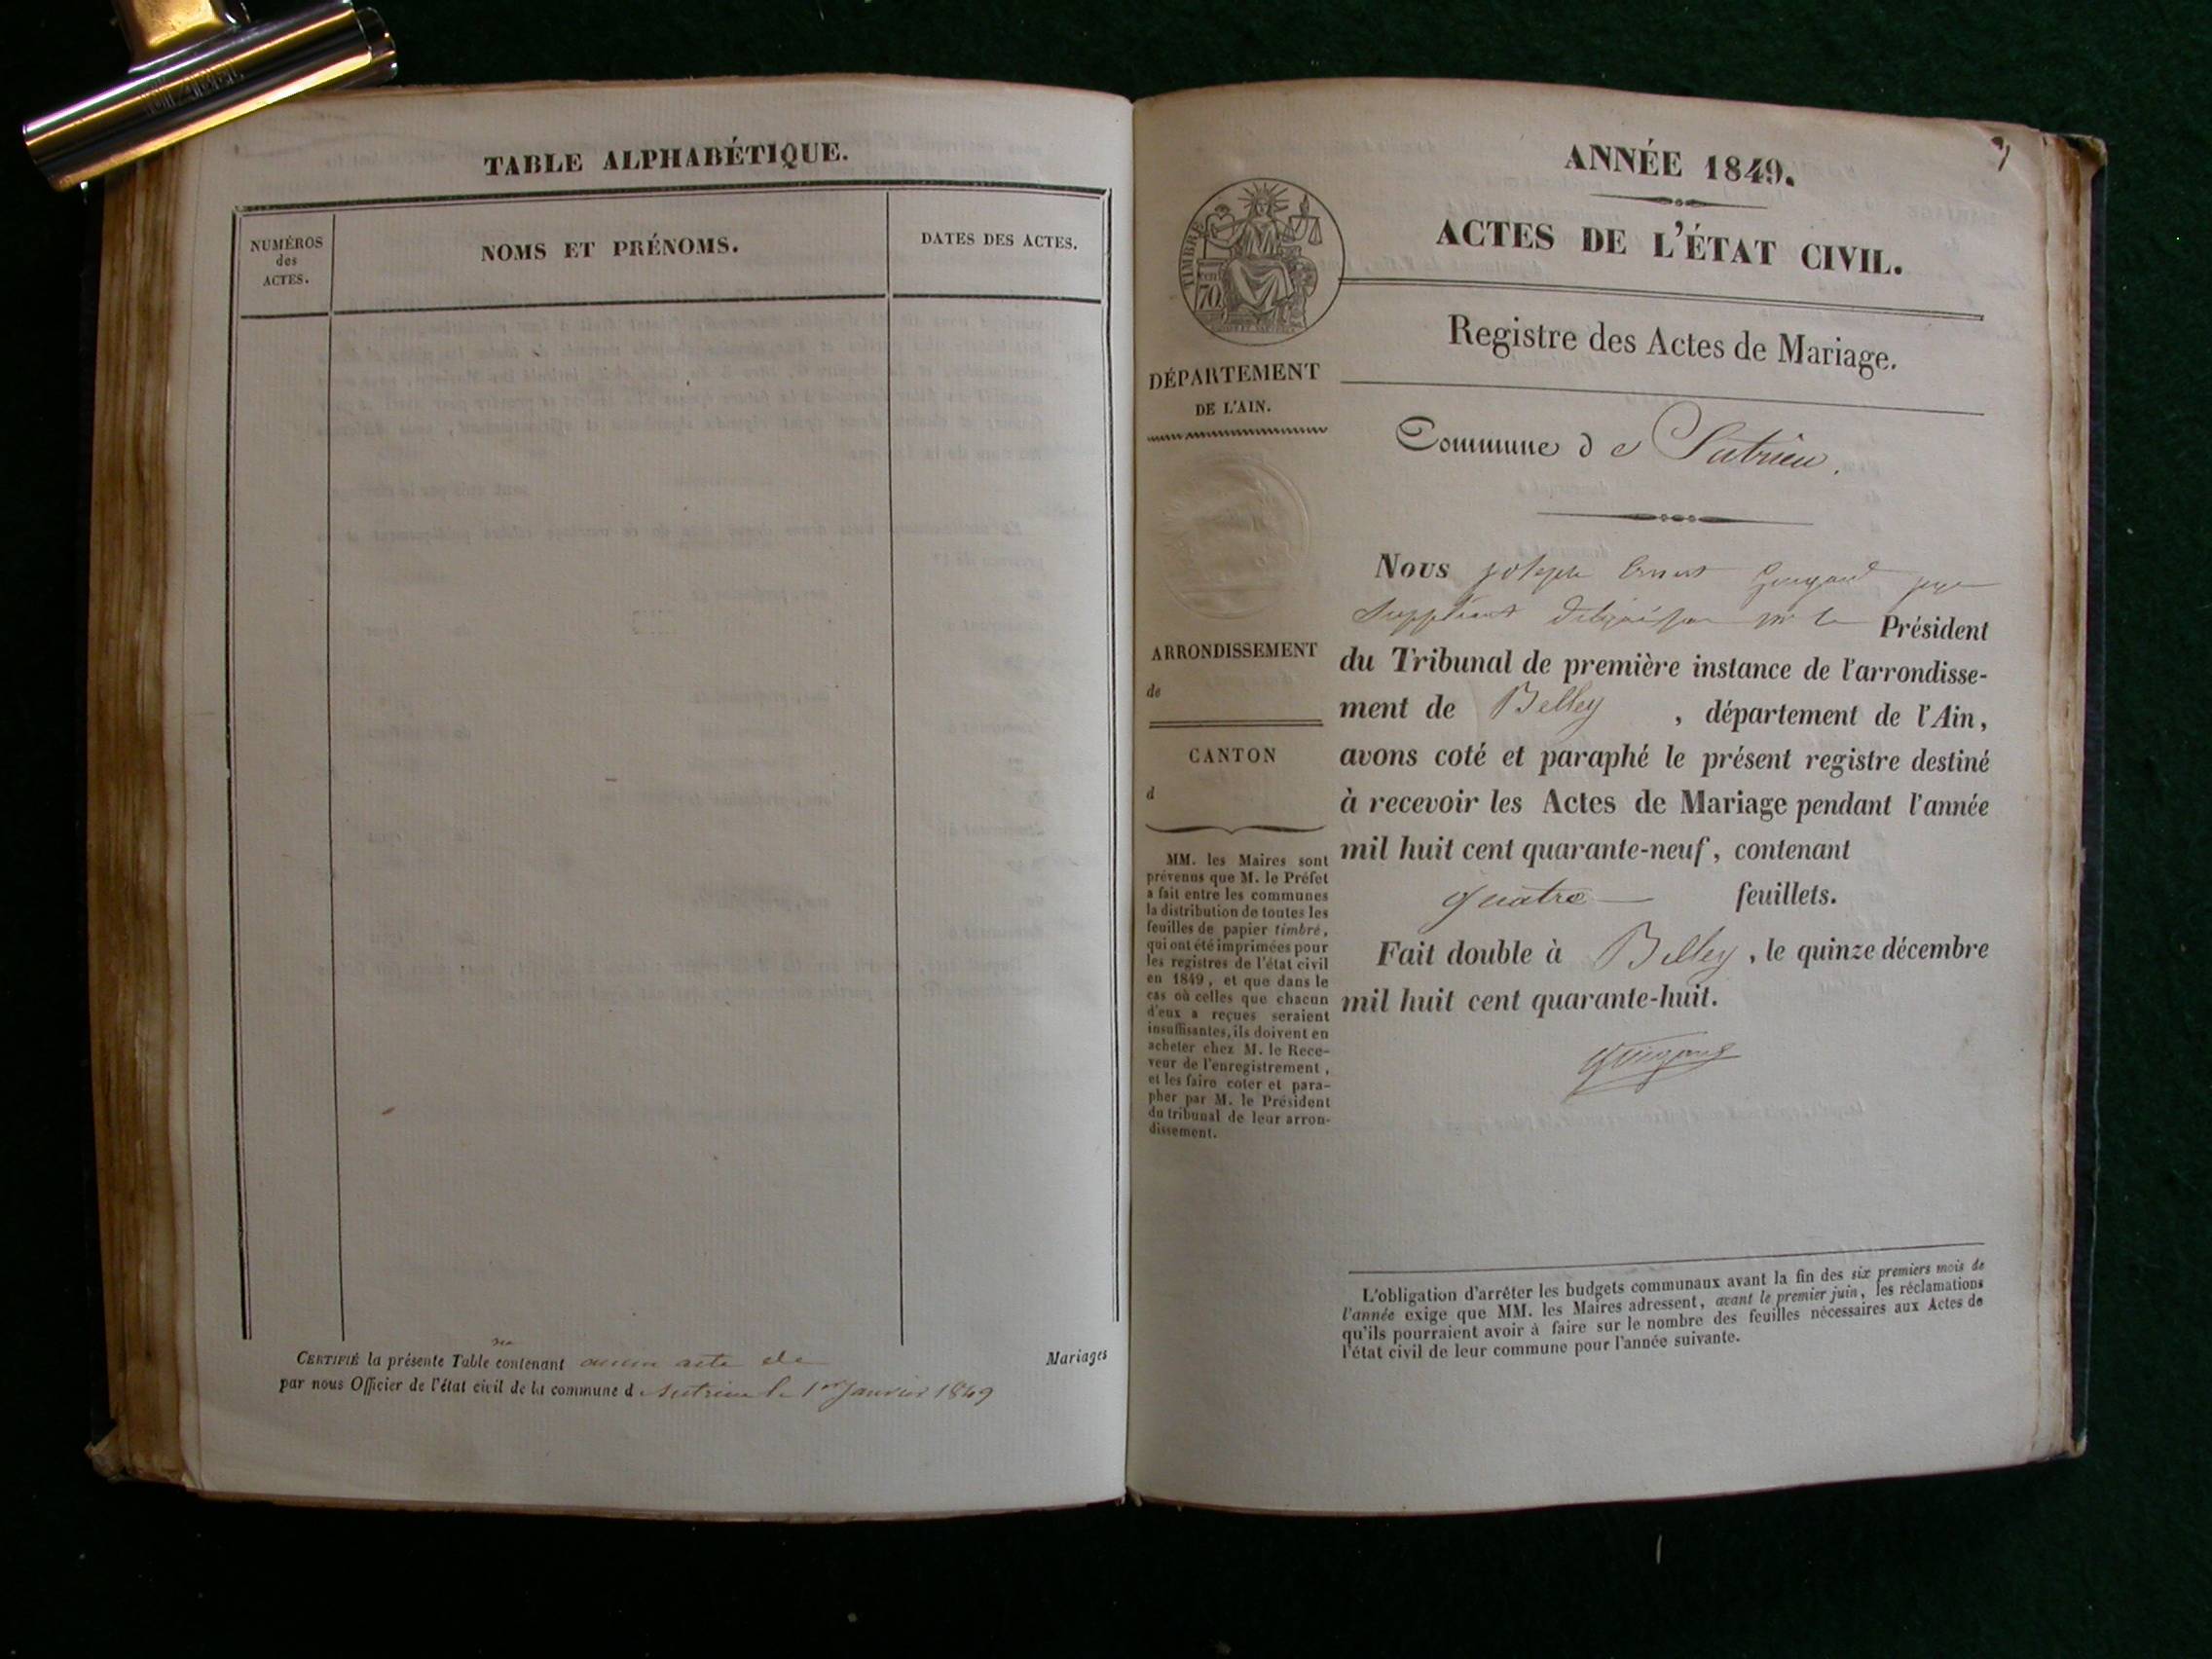 TABLE ALPHABÉTIQUE.
NUMÉROS
des
ACTES.
NOMS ET PRÉNOMS.
DATES DES ACTES.
CERTIFIÉ la présente Table contenant aucun acte de Mariages
par nous Officier de l'état civil de la commune d Sutrieu le 1er Janvier 1849
ANNÉE 1849.
ACTES DE L'ÉTAT CIVIL.
Registre des Actes de Mariage.
TIMBRE
70
DÉPARTEMENT
DE L'AIN.
ARRONDISSEMENT
de
CANTON
d
MM. les Maires sont
prévenus que M. le Préfet
a fait entre les communes
la distribution de toutes les
feuilles de papier timbré,
qui ont été imprimées pour
les registres de l'état civil
en 1849, et que dans le
cas où celles que chacun
d'eux a reçues seraient
insuffisantes, ils doivent en
acheter chez M. le Rece-
veur de l'enregistrement,
et les faire coter et para-
pher par M. le Président
du tribunal de leur arron-
dissement.
Commune de Sutrieu.
Nous joseph Ernest juge
Suppléant délégué par Mr le Président
du Tribunal de première instance de l'arrondisse-
ment de Belley, département de l'Ain,
avons coté et paraphé le présent registre destiné
à recevoir les Actes de Mariage pendant l'année
mil huit cent quarante-neuf, contenant
quatre feuillets.
Fait double à Belley, le quinze décembre
mil huit cent quarante-huit.
L'obligation d'arrêter les budgets communaux avant la fin des six premiers mois de
l'année exige que MM. les Maires adressent, avant le premier juin, les réclamations
qu'ils pourraient avoir à faire sur le nombre des feuilles nécessaires aux Actes de
l'état civil de leur commune pour l'année suivante.